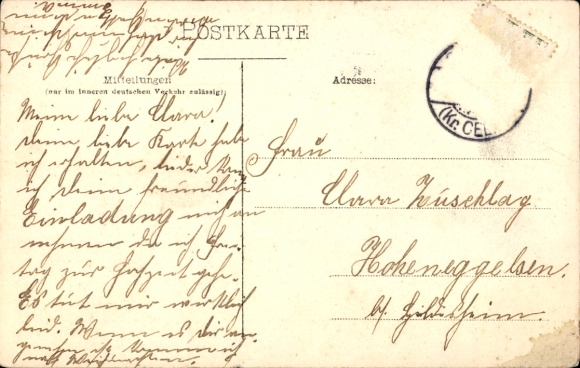 POSTKARTE
Mitteilungen
(nur im inneren deutschen Verkehr zulässig)
Adresse:
(Kr. CEL
Meine liebe Clara!
Deine liebe Karte habe
ich erhalten, leider kann
ich deine freundliche
Einladung nicht an
nehmen da ich Frei
tag zur Hochzeit gehe.
Es tut mir wirklich
leid. Wenn es dir an
genehm ist komme ich
nach Weihnachten.
Frau
Clara Zuschlag
Hoheneggelsen.
b/. Hildesheim.